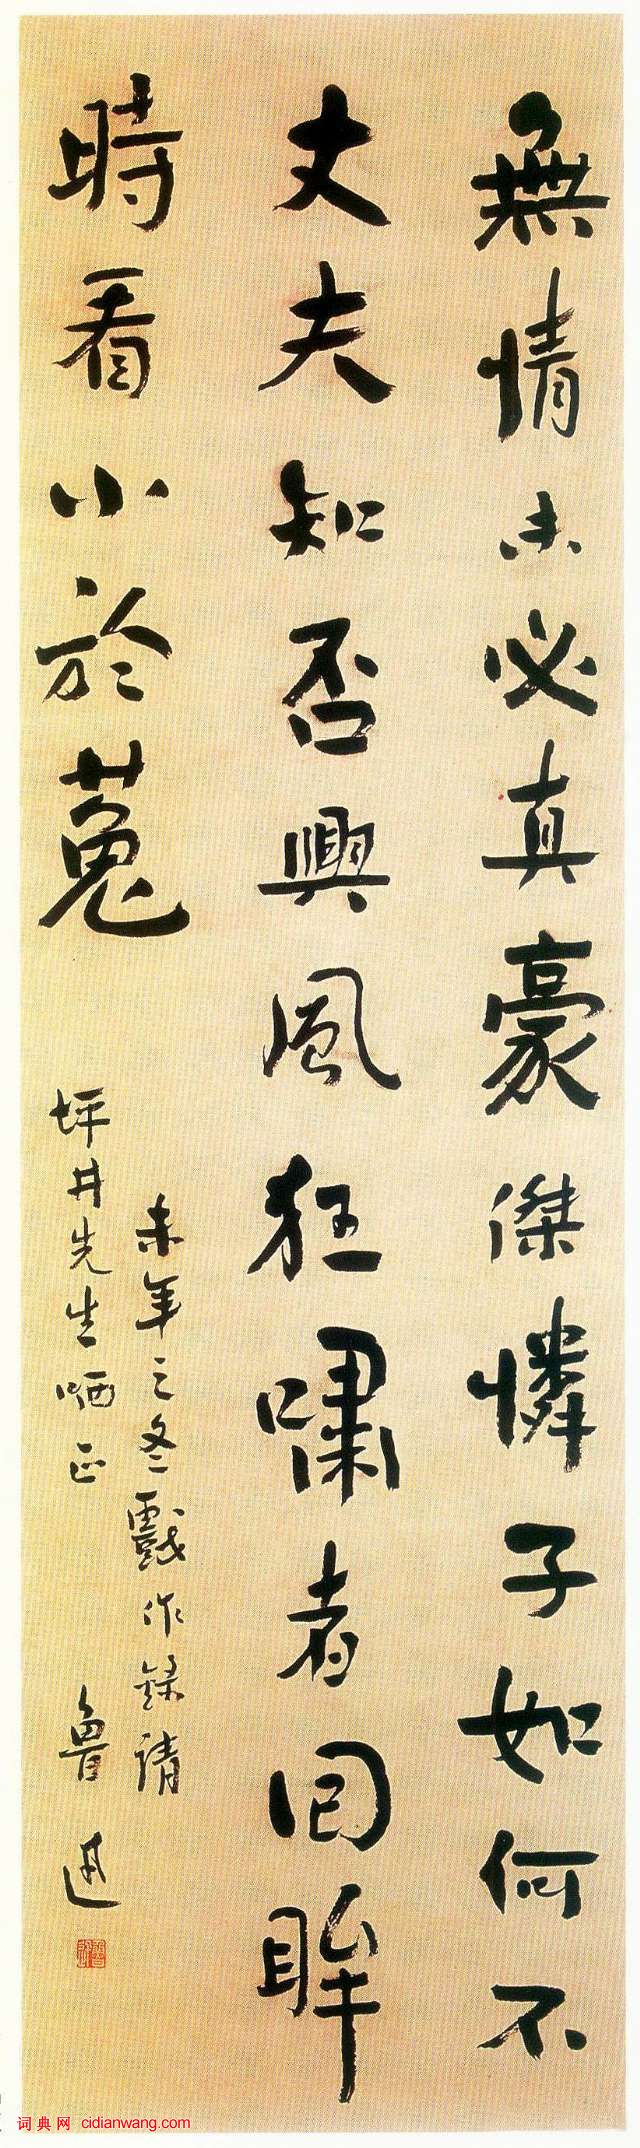 無情未必真豪傑憐子如何不
丈夫知否興風狂嘯者回眸
時看小於菟
未年之冬戲作錄請
坪井先生哂正
魯迅
词典网 cidianwang.com